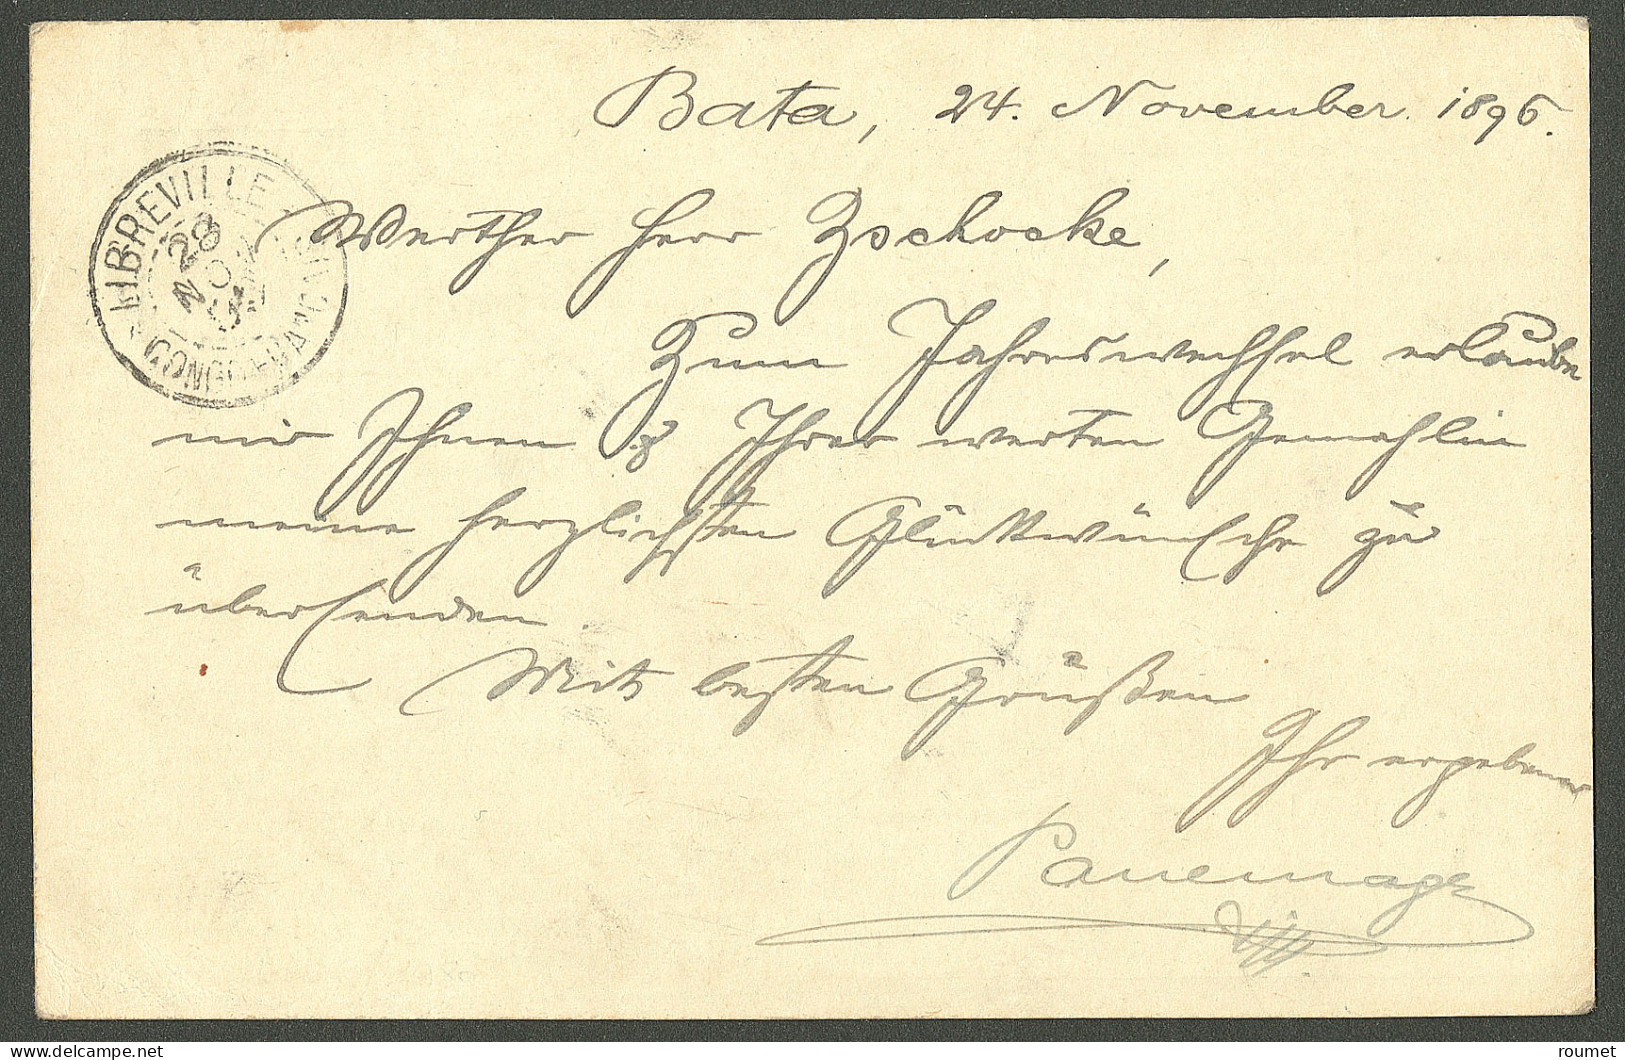 Bata, 24. November 1896.
LIBREVILLE
28
CONGO
Werther Herr Zschocke,
Zum Jahreswechsel erlaube
mir Ihnen & Ihrer werten Gemahlin
meine herzlichsten Glückwünsche zu
übersenden.
Mit besten Grüßen
Ihr ergebener
delcampe.net
roumet